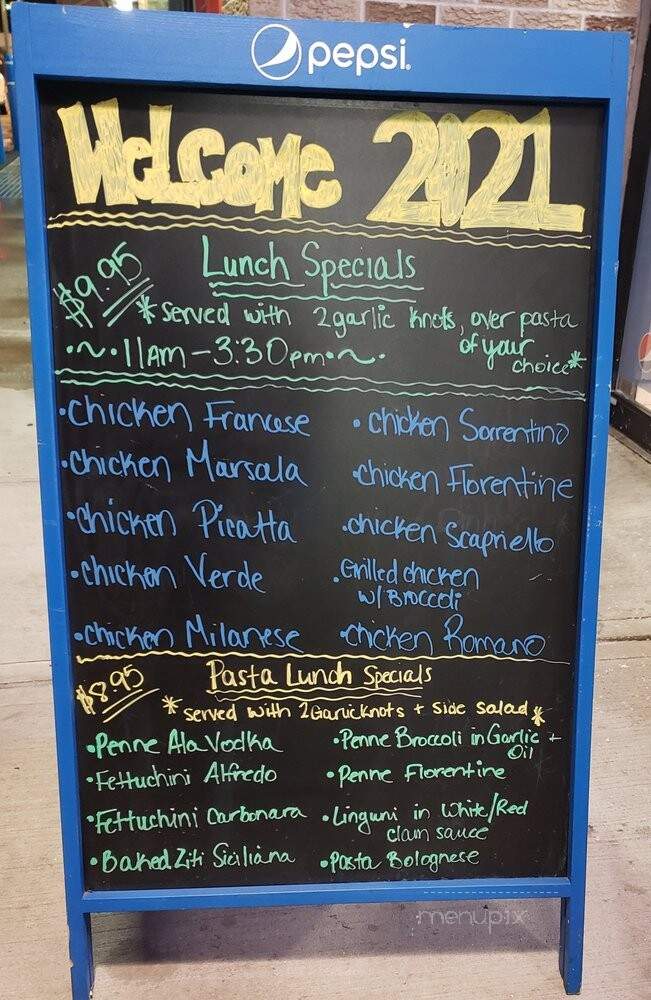 pepsi.
Welcome 2021
$9.95
Lunch Specials
*Served with 2 garlic knots, over pasta
of your
choice*
·~·11AM-3:30pm·~·
•Chicken Francese
•Chicken Sorrentino
•Chicken Marsala
•Chicken Florentine
•Chicken Picatta
•Chicken Scapriello
•Chicken Verde
•Grilled chicken
w/ Broccoli
•Chicken Milanese
•Chicken Romano
$8.95
Pasta Lunch Specials
*Served with 2 Garlic knots + side salad*
•Penne Ala Vodka
•Penne Broccoli in Garlic +
Oil
•Fettuchini Alfredo
•Penne Florentine
•Fettuchini Carbonara
•Linguni in White/Red
clam sauce
•Baked Ziti Siciliana
•Pasta Bolognese
menupix